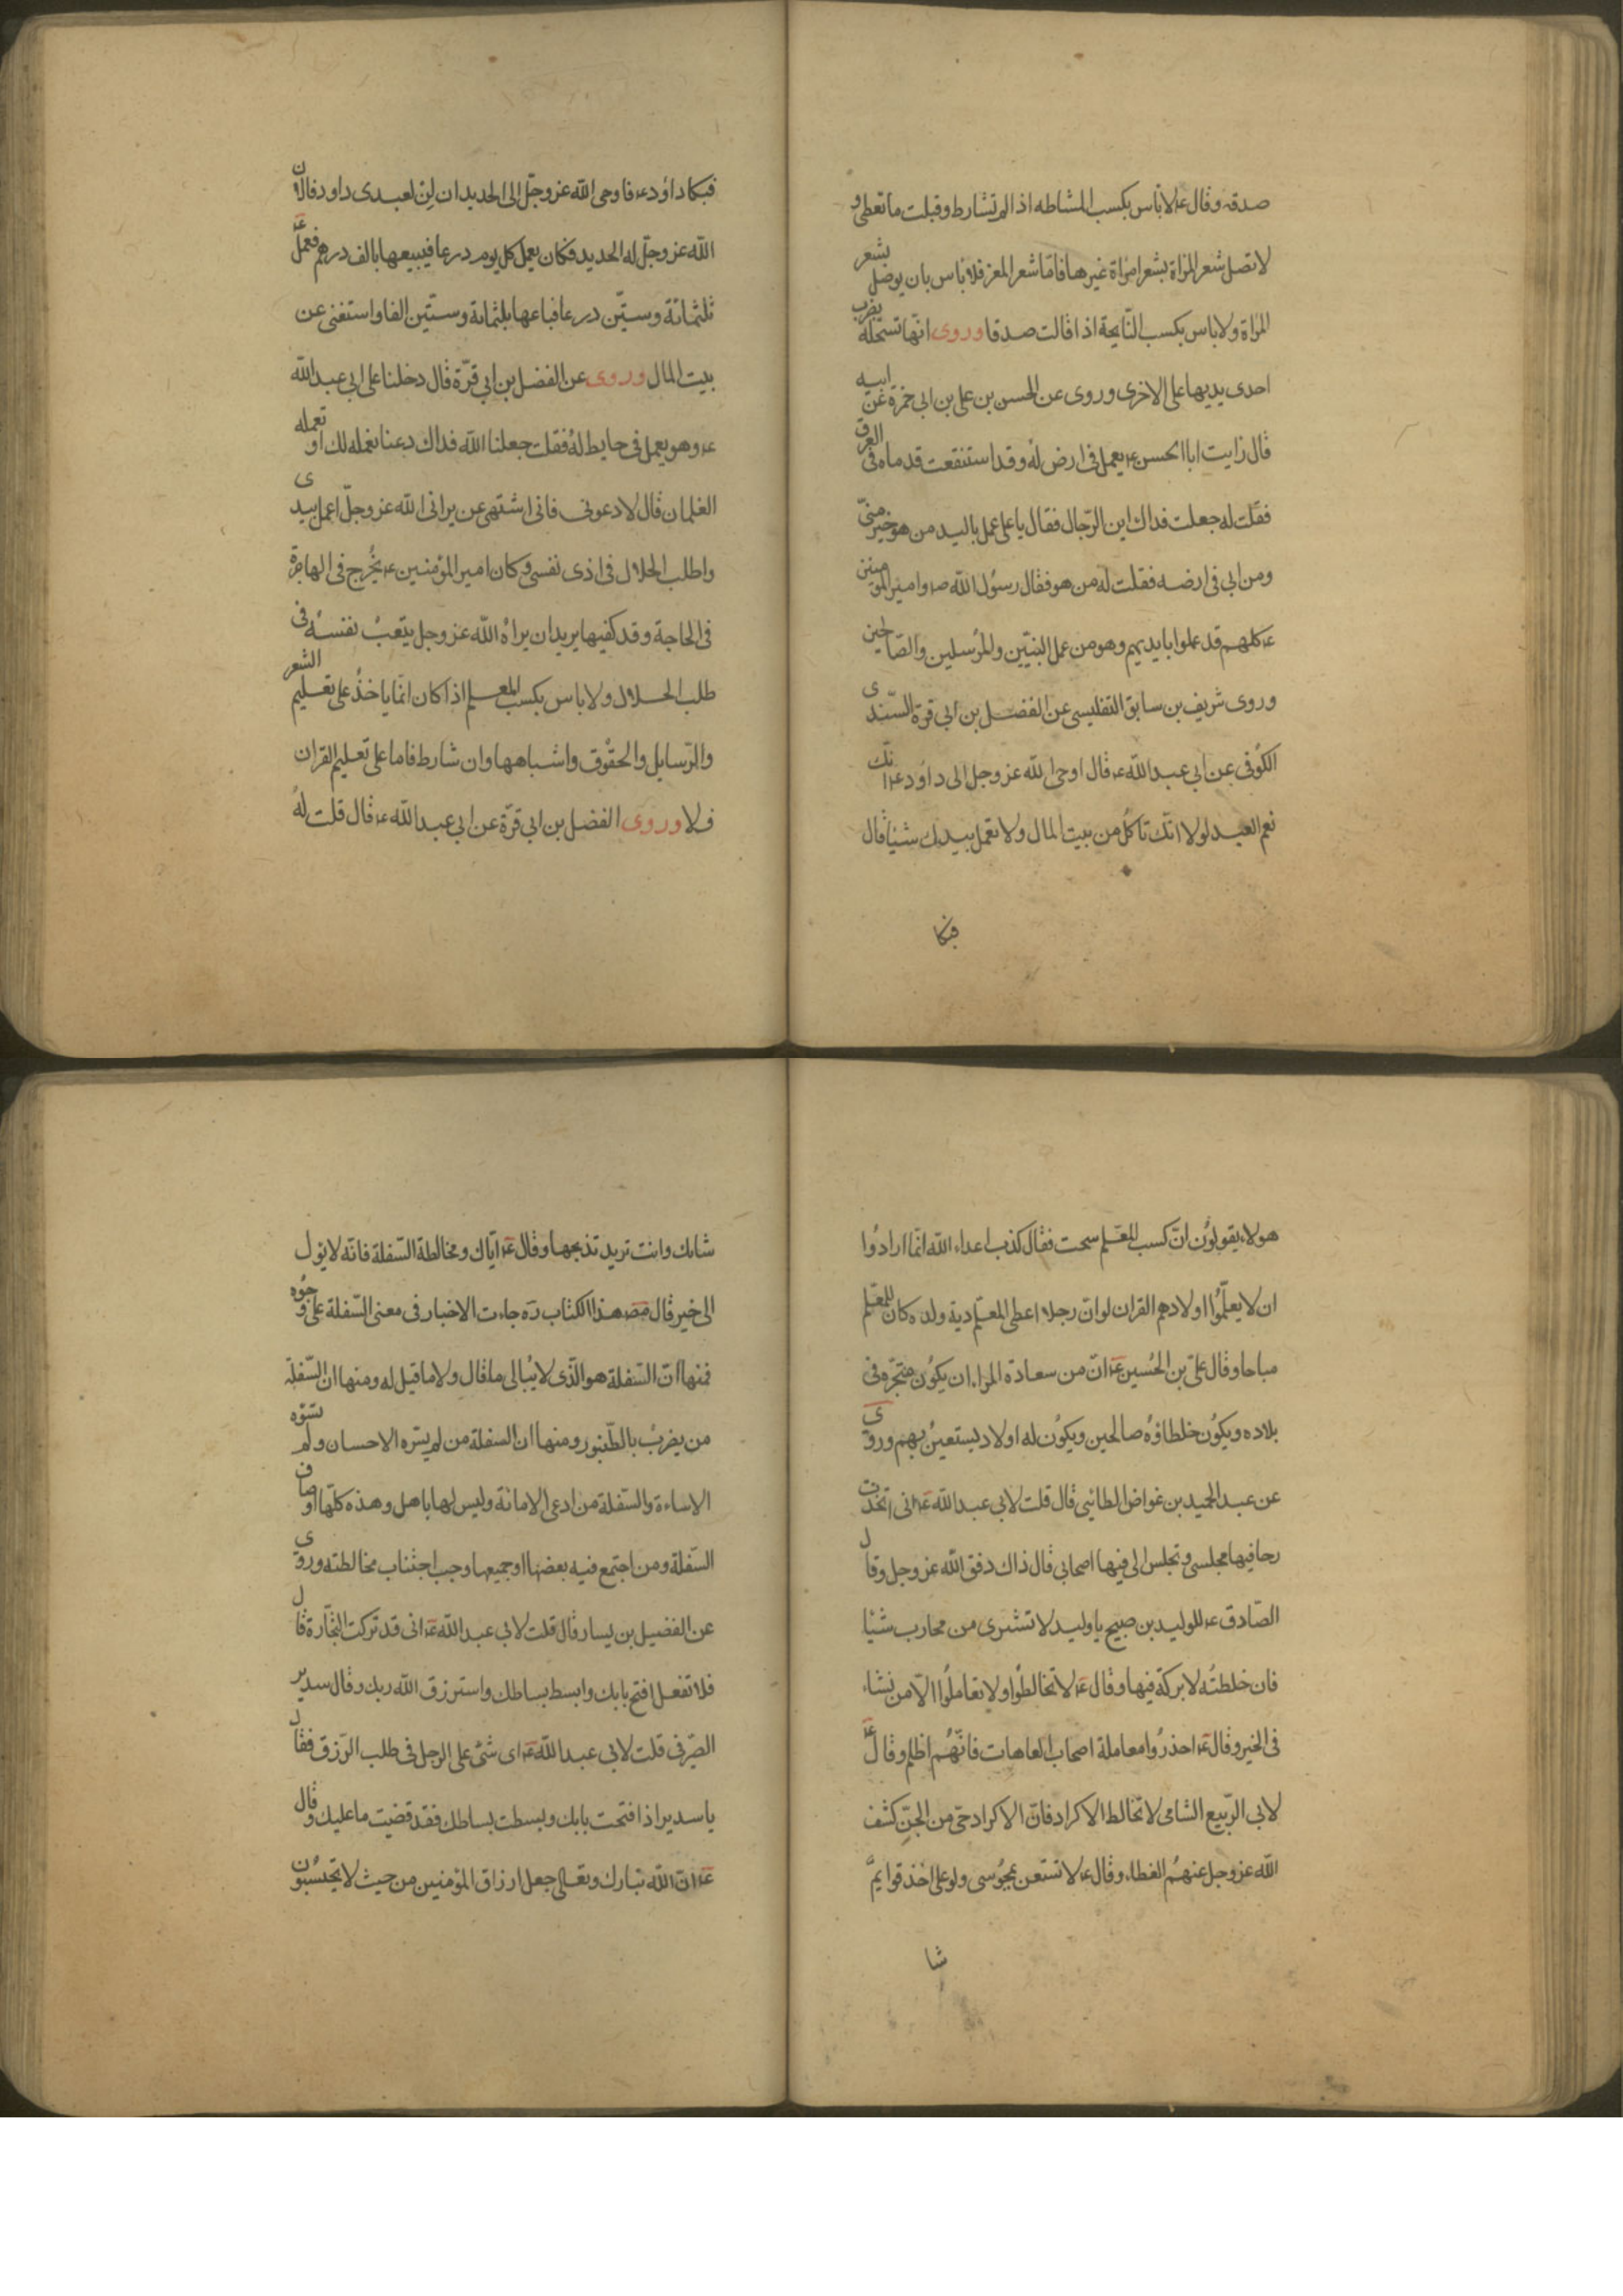 صدقه وقال ع لا بأس بكسب الماشطه اذا لم تشارط وقبلت ما تعطى و
لا تصل شعر المرأة بشعر امرأة غيرها فامّا شعر المعز فلا بأس بان يوصل بشعر
المرأة ولا باس بكسب النّايحة اذا قالت صدقا وروى انّها تستحلّه بضرب
احدى يديها على الاخرى وروى عن الحسن بن على بن ابى حمزة عن ابيه
قال رايت ابا الحسن ع يعمل فى ارض له وقد استنقعت قدماه فى العرق
فقلت له جعلت فداك اين الرّجال فقال يا على عمل باليد من هو خير منّى
ومن ابى فى ارضه فقلت له من هو فقال رسول الله ص وامير المومنين
ع كلهم قد عملوا بايديهم وهو من عمل النبيّين والمرسلين والصّالحين
وروى شريف بن سابق التفليسى عن الفضل بن ابى قرة السّندى
الكوفى عن ابى عبد الله ع قال اوحى الله عز وجل الى داود ع انّك
نعم العبد لولا انّك تاكل من بيت المال ولا تعمل بيدك شيئا قال
فبكا
فبكا داود ع فاوحى الله عز وجلّ الى الحديد ان لِن لعبدى داود فالان
الله عز وجلّ له الحديد فكان يعمل كل يوم درعا فيبيعها بالف درهم فعمل ع
ثلثمائة وستّين درعا فباعها بثلثمائة وستّين الفا واستغنى عن
بيت المال وروى عن الفضل بن ابى قرّة قال دخلنا على ابى عبد الله
ع وهو يعمل فى حايط له فقلت جعلنا الله فداك دعنا نعمله لك او تعمله
الغلمان قال لا دعونى فانى اشتهى عن يرانى الله عز وجلّ اعمل بيدى
واطلب الحلال فى اذى نفسى وكان امير المؤمنين ع يخرج فى الهاجرة
فى الحاجة وقد كفيها يريد ان يراه الله عز وجل يتعب نفسه فى
طلب الحلال ولا باس بكسب المعلم اذا كان انّما ياخذ على تعليم الشعر
والرّسايل والحقوق واشباهها وان شارط فاما على تعليم القران
فلا وروى الفضل بن ابى قرّة عن ابى عبد الله ع قال قلت له
هولاء يقولون انّ كسب المعلم سحت فقال كذب اعداء الله انّما ارادوا
ان لا يعلّموا اولادهم القران لو انّ رجلا اعطى المعلّم دية ولده كان للمعلّم
مباحا وقال علىّ بن الحسين ع انّ من سعادة المراء ان يكون متجره فى
بلاده ويكون خلطاؤه صالحين ويكون له اولاد يستعين بهم وروى
عن عبد الحميد بن غواض الطائىّ قال قلت لابى عبد الله ع انى اتخذت
رحا فيها مجلسى وتجلس الى فيها اصحابى قال ذاك دفق الله عز وجل وقال
الصّادق ع للوليد بن صبيح يا وليد لا تشترى من محارب شيئا
فان خلطته لا بركة فيها وقال ع لا تخالطوا ولا تعاملوا الّا من نشاء
فى الخير وقال ع احذروا معاملة اصحاب العاهات فانّهم اظلم وقال ع
لابى الرّبيع الشامى لا تخالط الاكراد فانّ الاكراد حىّ من الجنّ كشف
الله عز وجل عنهم الغطاء وقال ع لا تستعن بمجوسى ولو على اخذ قوايم
شا
شاتك وانت تريد تذبحها وقال ع ايّاك ومخالطة السّفلة فانّه لا يؤل
الى خير قال مصـ هذا الكتاب ره جاءت الاخبار فى معنى السّفلة على وجوه
فمنها انّ السّفلة هو الّذى لا يبالى ما قال ولا ما قيل له ومنها ان السّفلة
من يضرب بالطّنبور ومنها ان السفلة من لم يسّره الاحسان ولم تسّؤه
الاساءة والسّفلة من ادعى الامانة وليس لها باهل وهذه كلّها اوصاف
السّفلة ومن اجتمع فيه بعضها او جميعها وجب اجتناب مخالطته وروى
عن الفضيل بن يسار قال قلت لابى عبد الله ع انى قد تركت التّجارة قال
فلا تفعل افتح بابك وابسط بساطك واسترزق الله ربك وقال سدير
الصّيرفى قلت لابى عبد الله ع اى شئ على الرجل فى طلب الرّزق فقال
يا سدير اذا فتحت بابك وبسطت بساطك فقد قضيت ما عليك وقال
ع انّ الله تبارك وتعالى جعل ارزاق المؤمنين من حيث لا يحتسبون